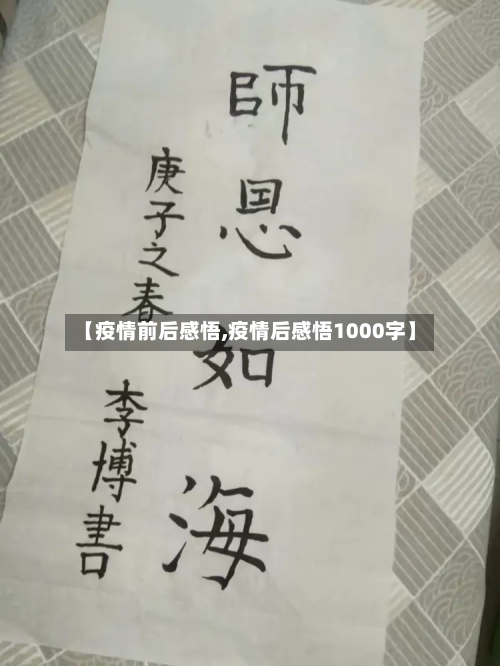 師恩如海
庚子之春
李博書
【疫情前后感悟,疫情后感悟1000字】